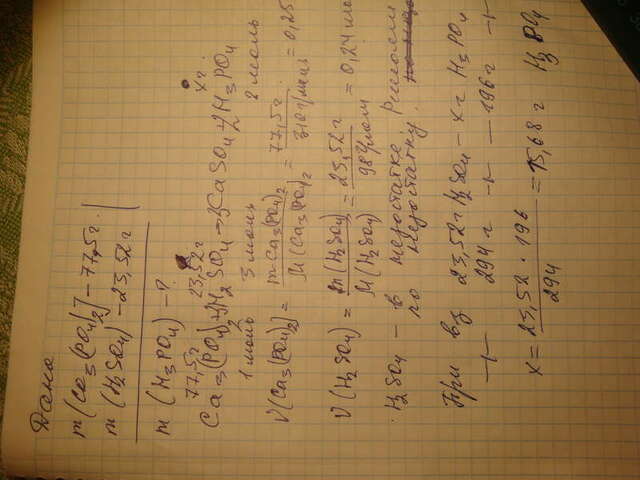 Дано
m (Ca3(PO4)2) - 77,5г.
m (H2SO4) - 23,52 г
m (H3PO4) - ?
77,5г 23,52 г x г.
Ca3(PO4)2 + 3H2SO4 → 3CaSO4 + 2H3PO4
1 моль 3 моль 2 моль
ν(Ca3(PO4)2) = m Ca3(PO4)2 / M(Ca3(PO4)2 = 77,5г. / 310 г/моль = 0,25
ν (H2SO4) = m (H2SO4) / M (H2SO4) = 23,52г / 98 г/моль = 0,24 моль
H2SO4 - в недостатке. Решаем
по недостатку.
При вз 23,52г H2SO4 - x г H3PO4
-//- 294 г -//- - 196 г -//-
x = 23,52 · 196 / 294 = 15,68 г H3PO4